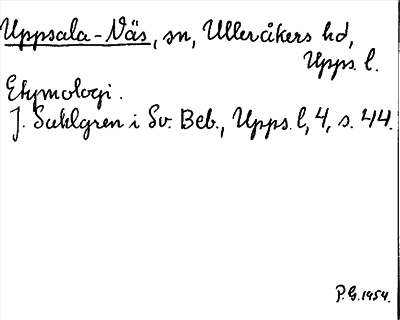 Uppsala-Näs, sn, Ulleråkers hd,
Upps. l.
Etymologi.
J. Sahlgren i Sv. Beb., Upps. l, 4, s. 44.
P.G. 1954.